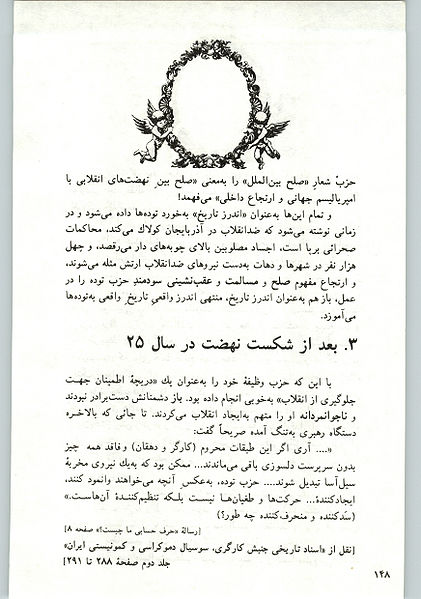 حزب شعار «صلح بین‌الملل» را به‌معنی «صلح بین نهضت‌های انقلابی با
امپریالیسم جهانی و ارتجاع داخلی» می‌فهمد!
و تمام این‌ها به‌عنوان «اندرز تاریخ» به‌خورد توده‌ها داده می‌شود و در
زمانی نوشته می‌شود که ضدانقلاب در آذربایجان کولاك می‌کند، محاکمات
صحرائی برپا است، اجساد مصلوبین بالای چوبه‌های دار می‌رقصد، و چهل
هزار نفر در شهرها و دهات به‌دست نیروهای ضدانقلاب ارتش مثله می‌شوند،
و ارتجاع مفهوم صلح و مسالمت و عقب‌نشینی سودمند حزب توده را در
عمل، باز هم به‌عنوان اندرز تاریخ، منتهی اندرز واقعی تاریخ واقعی به‌توده‌ها
می‌آموزد.
۳. بعد از شکست نهضت در سال ۲۵
با این که حزب وظیفهٔ خود را به‌عنوان یك «دریچهٔ اطمینان جهت
جلوگیری از انقلاب» به‌خوبی انجام داده بود. باز دشمنانش دست‌بردار نبودند
و ناجوانمردانه او را متهم به‌ایجاد انقلاب می‌کردند. تا جائی که بالاخره
دستگاه رهبری به‌تنگ آمده صریحاً گفت:
«.... آری اگر این طبقات محروم (کارگر و دهقان) و فاقد همه چیز
بدون سرپرست دلسوزی باقی می‌ماندند... ممکن بود که به‌یك نیروی مخربهٔ
سیل‌آسا تبدیل شوند.... حزب توده، به‌عکس آنچه می‌خواهند وانمود کنند،
ایجادکنندهٔ... حرکت‌ها و طغیان‌ها نیست بلکه تنظیم‌کنندهٔ آن‌هاست.»
(سدکننده و منحرف‌کننده چه طور؟)
[رسالهٔ «حرف حسابی ما چیست؟» صفحه ۸]
[نقل از «اسناد تاریخی جنبش کارگری، سوسیال دموکراسی و کمونیستی ایران»
جلد دوم صفحهٔ ۲۸۸ تا ۲۹۱]
۱۴۸